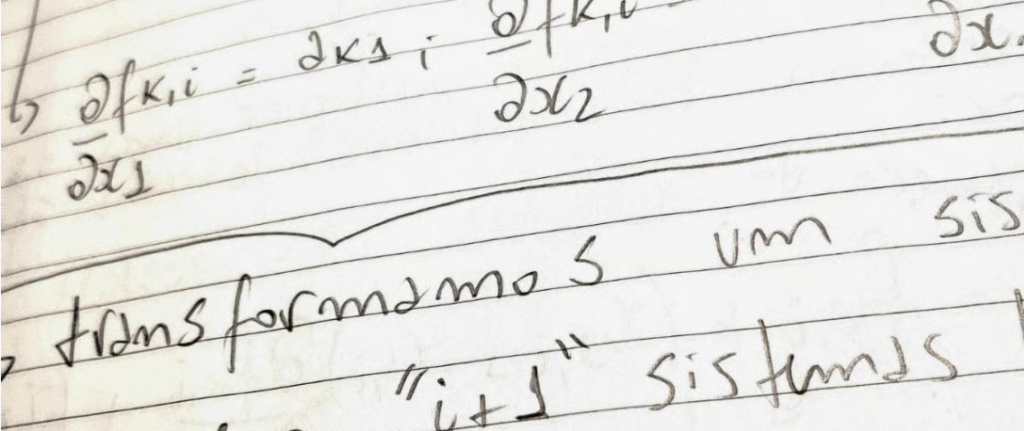 ∂fk,i = ak1 ; ∂fk,i ∂x
∂x1 ∂x2
transformamos um sis
"i+1" sistemas